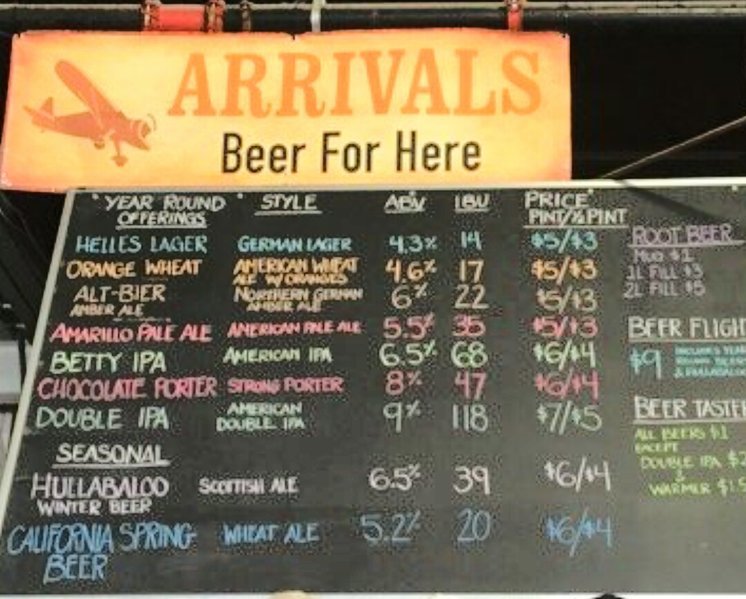 ARRIVALS
Beer For Here
YEAR ROUND OFFERINGS STYLE ABV IBU PRICE PINT/½ PINT
HELLES LAGER GERMAN LAGER 4.3% 14 $5/$3
ORANGE WHEAT AMERICAN WHEAT ALE W/ ORANGES 4.6% 17 $5/$3
ALT-BIER AMBER ALE NORTHERN GERMAN AMBER ALE 6% 22 $5/$3
AMARILLO PALE ALE AMERICAN PALE ALE 5.5% 35 $5/$3
BETTY IPA AMERICAN IPA 6.5% 68 $6/$4
CHOCOLATE PORTER STRONG PORTER 8% 47 $6/$4
DOUBLE IPA AMERICAN DOUBLE IPA 9% 118 $7/$5
SEASONAL
HULLABALOO WINTER BEER SCOTTISH ALE 6.5% 39 $6/$4
CALIFORNIA SPRING BEER WHEAT ALE 5.2% 20 $6/$4
ROOT BEER
MUG $2
1L FILL $3
2L FILL $5
BEER FLIGH
$9 INCLUDES YEAR
ROUND BEERS
& HULLABALOO
BEER TASTE
ALL BEERS $1
EXCEPT
DOUBLE IPA $2
&
WARMER $1.5